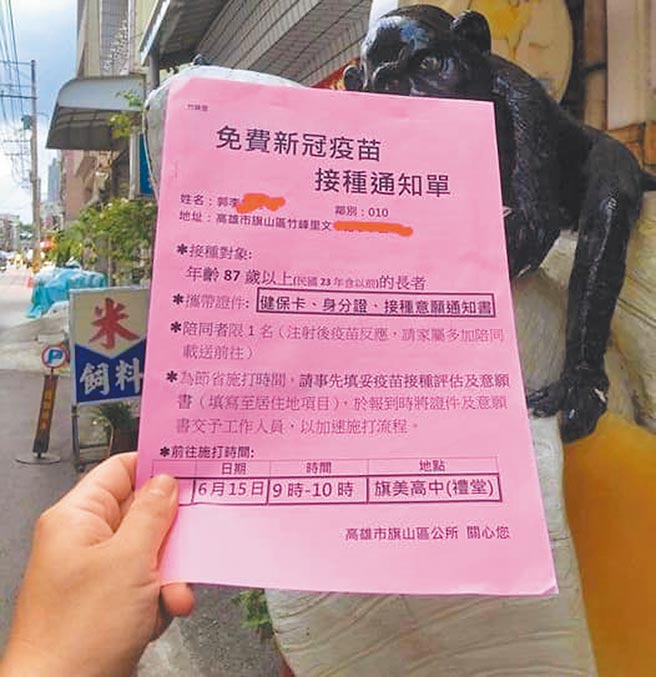 竹峰里
免費新冠疫苗
接種通知單
姓名：郭李
鄰別：010
地址：高雄市旗山區竹峰里文
＊接種對象:
年齡 87 歲以上(民國 23 年含以前)的長者
＊攜帶證件: 健保卡、身分證、接種意願通知書
＊陪同者限 1 名（注射後疫苗反應，請家屬多加陪同
載送前往）
＊為節省施打時間，請事先填妥疫苗接種評估及意願
書（填寫至居住地項目），於報到時將證件及意願
書交予工作人員，以加速施打流程。
＊前往施打時間:
日期 時間 地點
6 月 15 日 9 時-10 時 旗美高中(禮堂)
高雄市旗山區公所 關心您
米
飼料
P